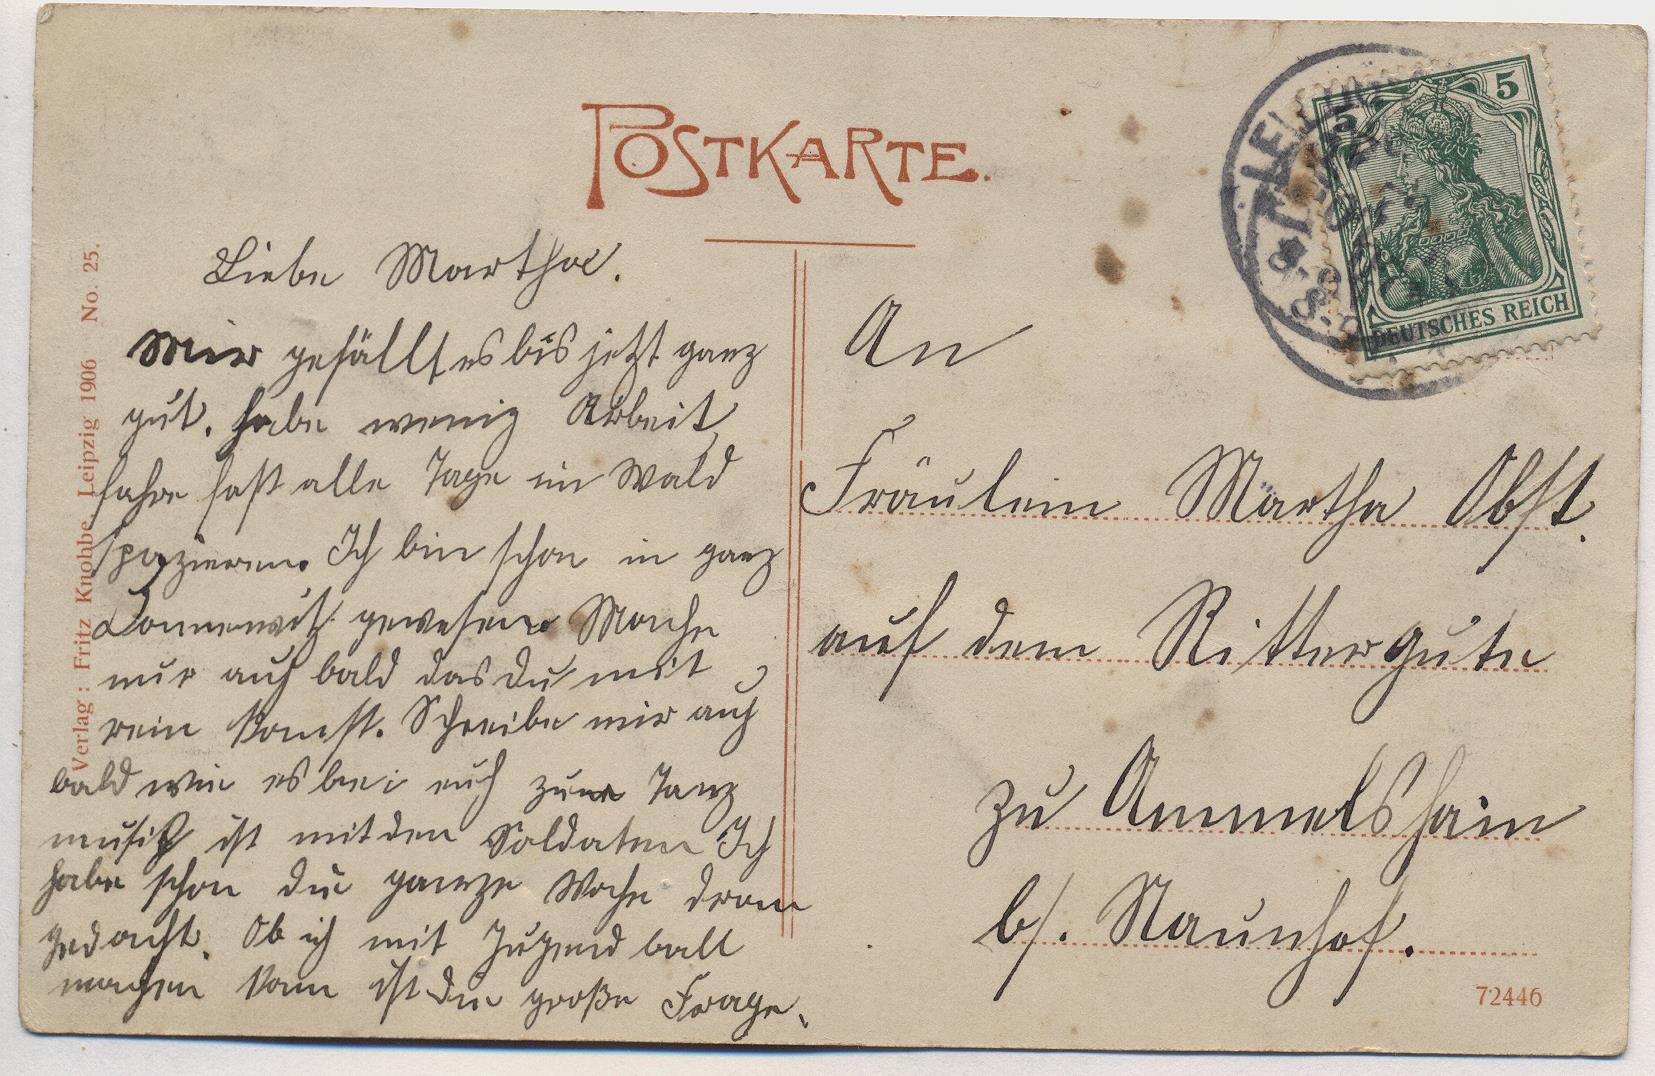 POSTKARTE.
Liebe Martha.
Mir gefällt es bis jetzt ganz
gut. habe wenig Arbeit,
fahre fast alle Tage im Wald
spazieren. Ich bin schon in ganz
gewesen. Mache
nur auch bald das Du mit
rein komst. Schreibe mir auch
bald wie es bei euch zum Tanz
musik ist mit den Soldaten Ich
habe schon die ganze Woche dran
gedacht. Ob ich mit Jugend ball
machen kann ist die große Frage.
Verlag: Fritz Knobbe, Leipzig 1906 No. 25.
5
5
DEUTSCHES REICH
An
Fräulein Martha Obst.
auf dem Rittergute
zu Ammelshain
b/. Naunhof.
72446